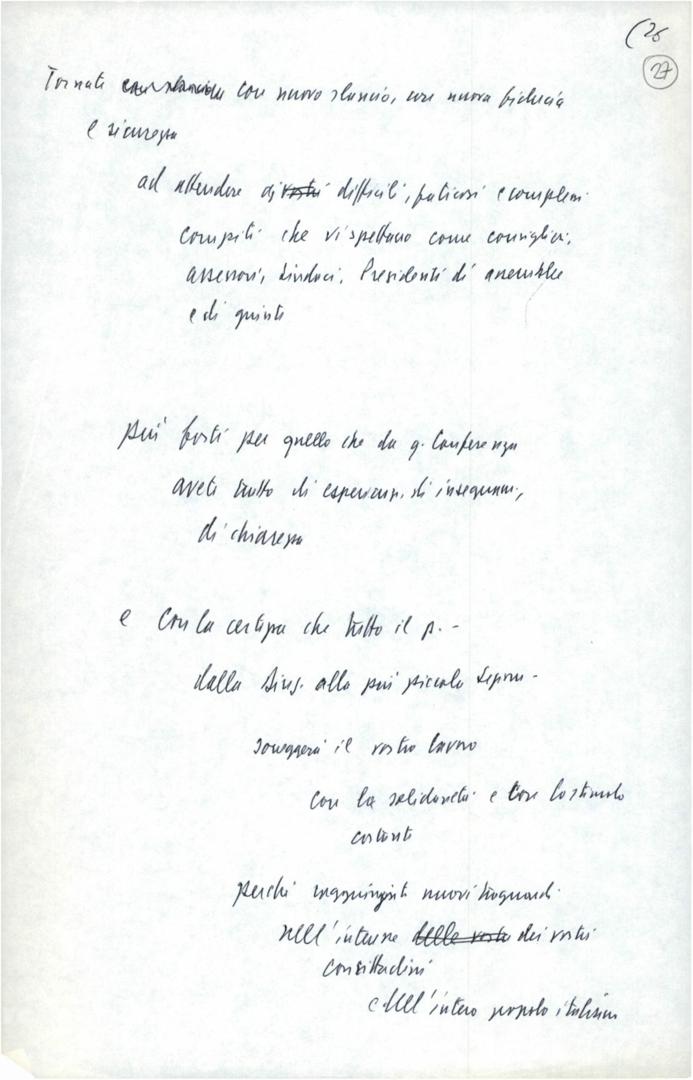 (26
27
Tornate con slancio con nuovo slancio, con nuova fiducia
e sicurezza
ad attendere ai vostri difficili, faticosi e complessi
compiti che vi spettano come consiglieri,
assessori, sindaci, Presidenti di assemblee
e di giunte
più forti per quello che da q. Conferenza
avete tratto di esperienze, di insegnam.,
di chiarezza
e con la certezza che tutto il p. -
dalla Direz. alla più piccola sezione -
sorreggerà il vostro lavoro
con la solidarietà e con lo stimolo
costante
perché raggiungiate nuovi traguardi
nell'interesse delle vostre dei vostri
concittadini
e dell'intero popolo italiano